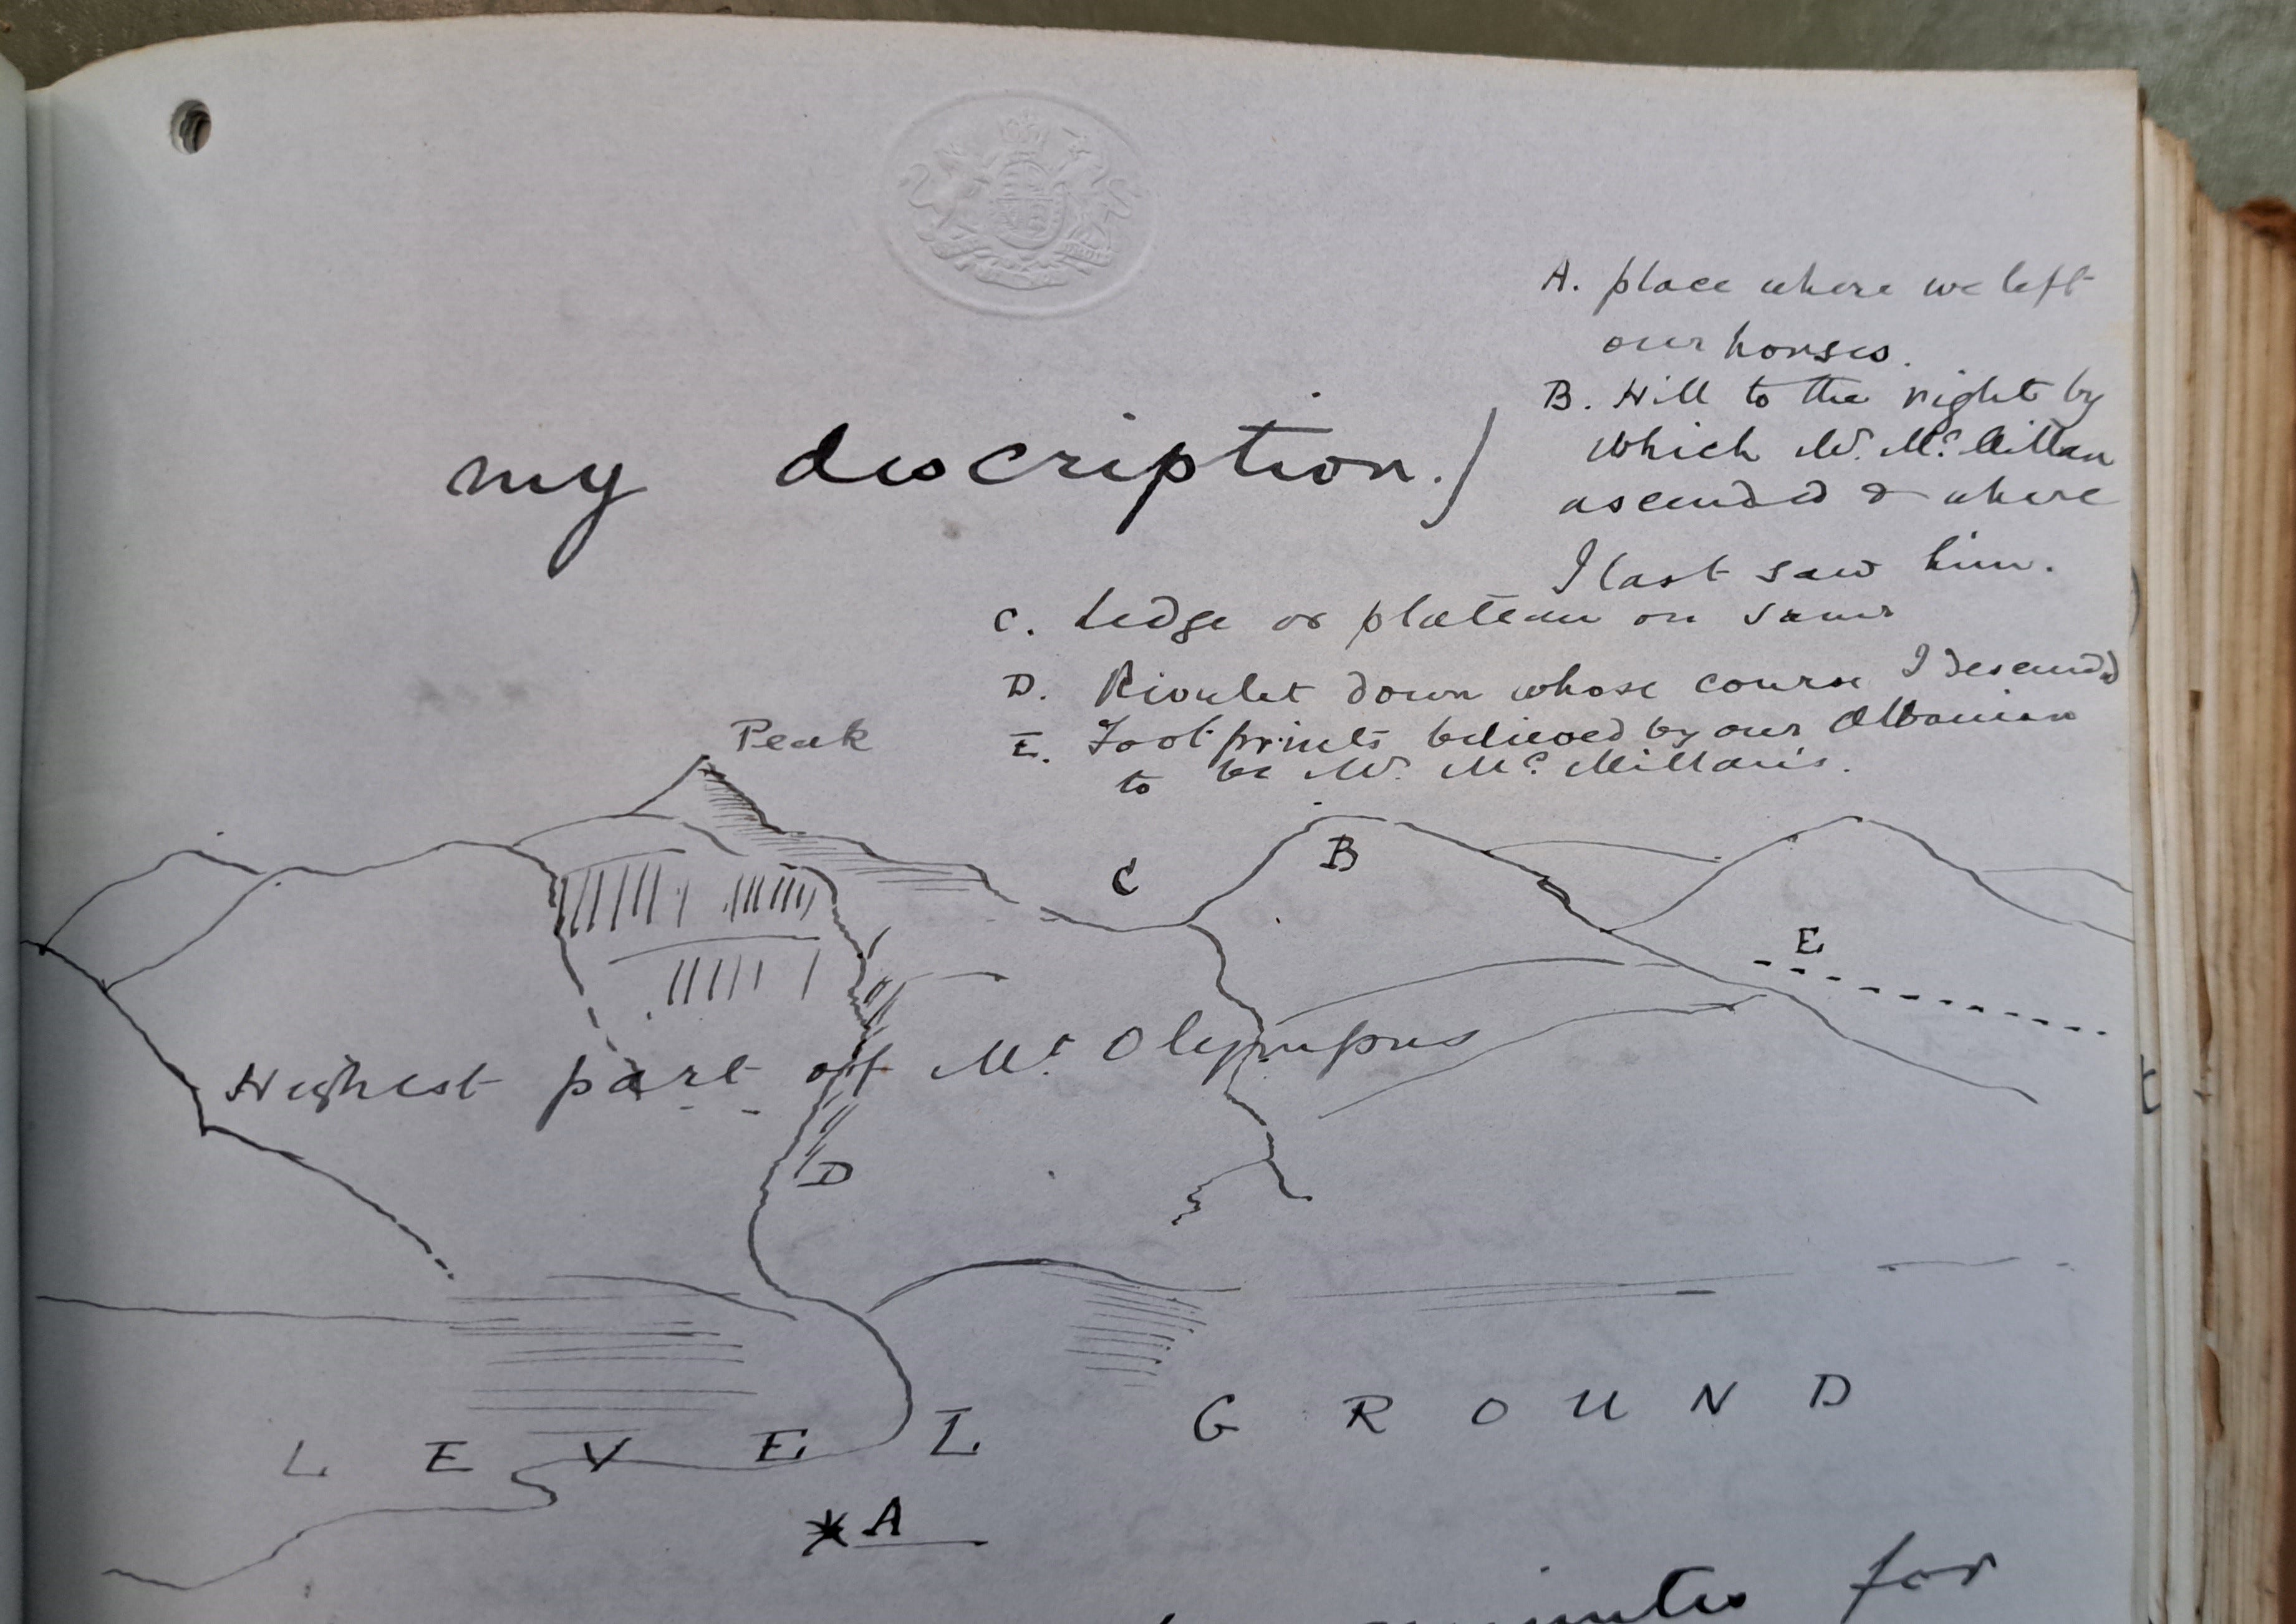 my description.)
A. place where we left
our horses.
B. Hill to the right by
which Mr. McMillan
ascended & where
I last saw him.
C. Ledge or plateau on same
D. Rivulet down whose course I descended
E. Foot prints believed by our Albanian
to be Mr. McMillan's.
Peak
C
B
E
Highest part of Mt Olympus
D
LEVEL GROUND
A
for